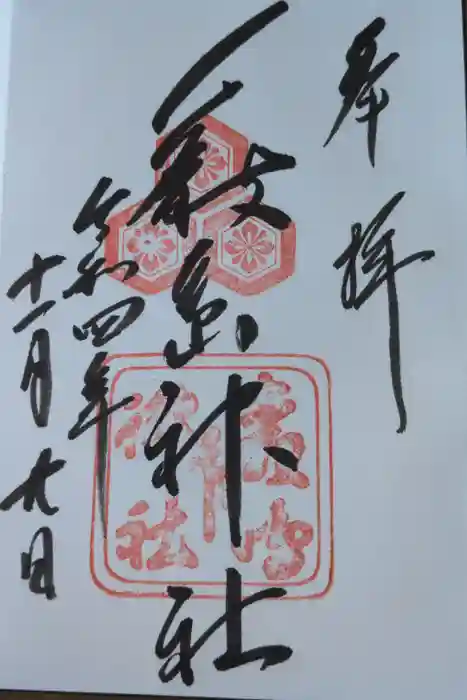 奉拝
厳島神社
令和四年
十一月九日
嚴島神社